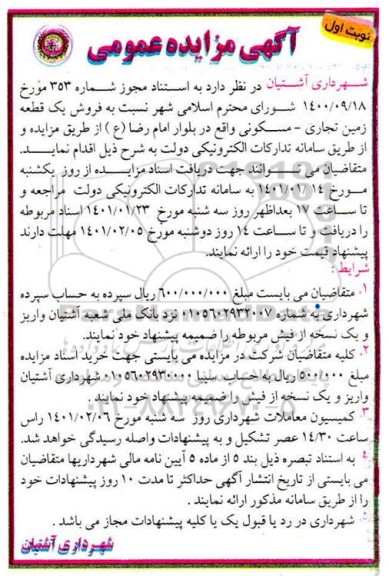 نوبت اول
آگهی مزایده عمومی
شهرداری آشتیان در نظر دارد به استناد مجوز شماره ۳۵۳ مورخ
۱۴۰۰/۰۹/۱۸ شورای محترم اسلامی شهر نسبت به فروش یک قطعه
زمین تجاری - مسکونی واقع در بلوار امام رضا (ع) از طریق مزایده و
از طریق سامانه تدارکات الکترونیکی دولت به شرح ذیل اقدام نمایـد.
متقاضیان می توانند جهت دریافت اسناد مزایـده از روز یکشنبه
مورخ ۱۴۰۱/۰۱/۱۴ به سامانه تدارکات الکترونیکی دولت مراجعه و
تا ساعت ۱۷ بعداظهر روز سه شنبه مورخ ۱۴۰۱/۰۱/۲۳ اسناد مربوطه
را دریافت و تا ساعت ۱۴ روز دوشنبه مورخ ۱۴۰۱/۰۲/۰۵ مهلت دارند
پیشنهاد قیمت خود را ارائه نمایند.
شرایط :
۱. متقاضیان می بایست مبلغ ۶۰۰/۰۰۰/۰۰۰ ریال سپرده به حساب سپرده
شهرداری به شماره ۰۱۰۵۶۰۲۹۳۲۰۰۷ نزد بانک ملی شعبه آشتیان واریز
و یک نسخه از فیش مربوطه را ضمیمه پیشنهاد خود نمایند.
۲. کلیه متقاضیان شرکت در مزایده می بایستی جهت خرید اسناد مزایده
مبلغ ۵۰۰/۰۰۰ ریال به حساب سیبا ۰۱۰۵۶۰۲۹۳۰۰۰۰ شهرداری آشتیان
واریز و یک نسخه از فیش را ضمیمه پیشنهاد خود نمایند .
۳. کمیسیون معاملات شهرداری روز سه شنبه مورخ ۱۴۰۱/۰۲/۰۶ راس
ساعت ۱۴/۳۰ عصر تشکیل و به پیشنهادات واصله رسیدگی خواهد شد.
۴. به استناد تبصره ذیل بند ۵ از ماده ۵ آیین نامه مالی شهرداریها متقاضیان
می بایستی از تاریخ انتشار آگهی حداکثر تا مدت ۱۰ روز پیشنهادات خود
را از طریق سامانه مذکور ارائه نمایند .
۵. شهرداری در رد یا قبول یک یا کلیه پیشنهادات مجاز می باشد .
شهرداری آشتیان